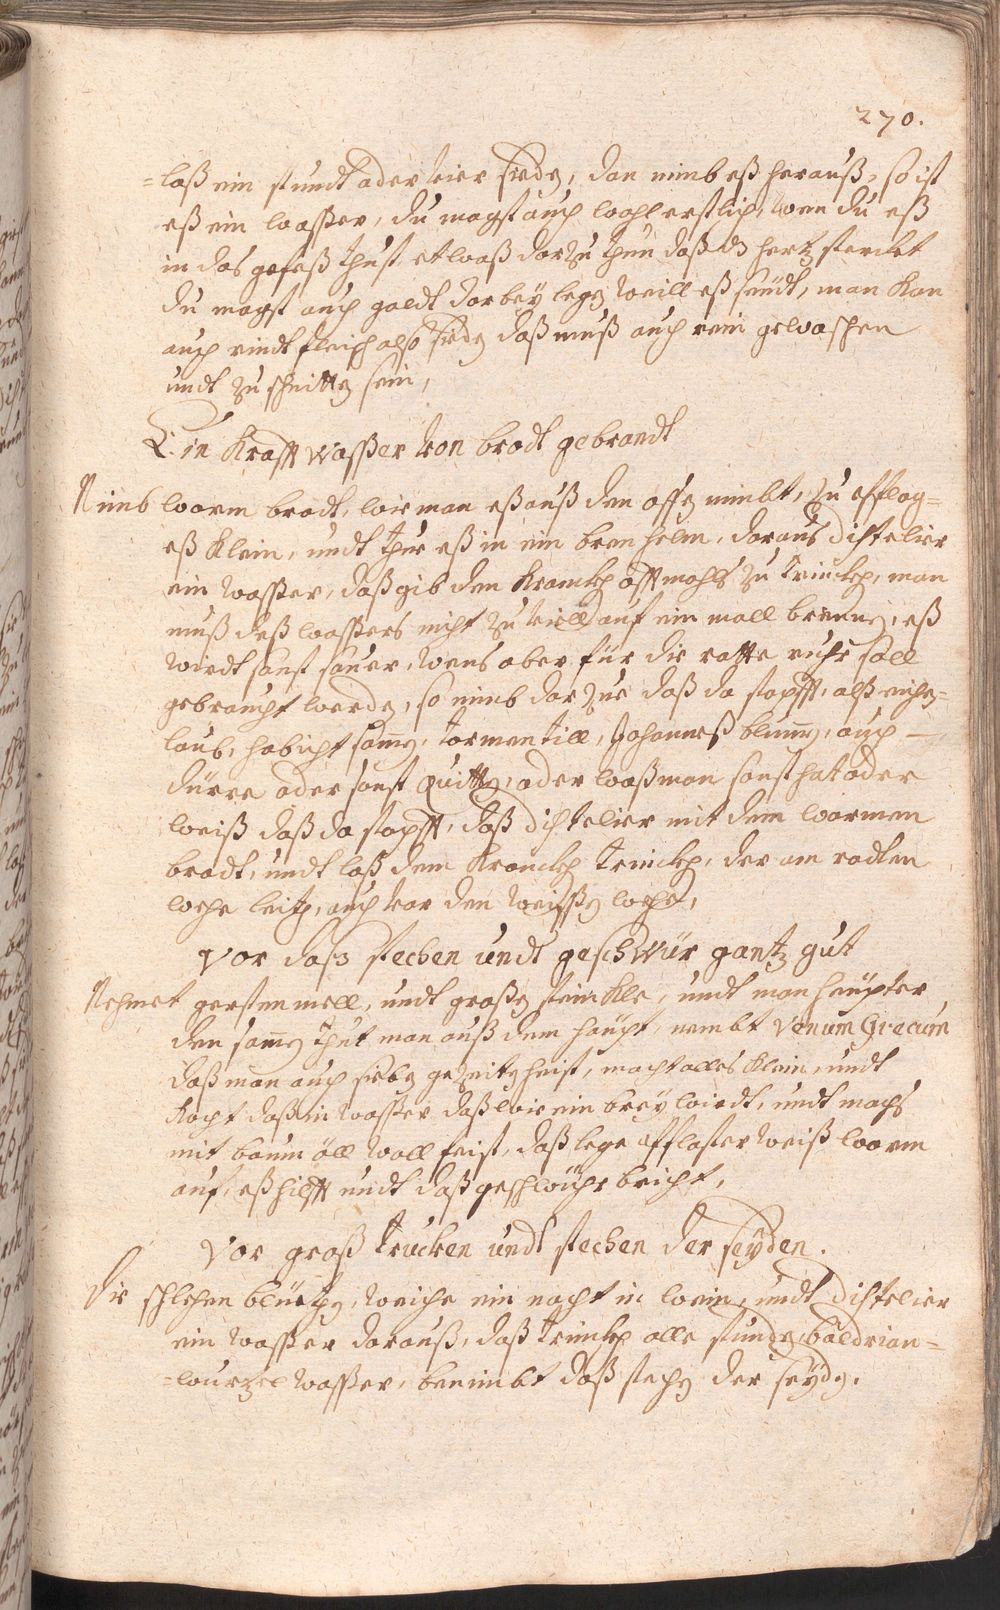 270.
=laß ein stundt oder vier siedē, dan nimb eß herauß, so ist
eß ein waßer, du magst auch wohl erstlich, wen du eß
in das gefeß thust etwaß darzu thun daß dz hertz sterckt
du magst auch goldt darbeÿ legē weill eß seudt, man kan
auch rindtfleisch also siedē daß muß auch rein gewaschen
undt zu schnittē sein,
Ein Krafft waßer von brodt gebrandt
Nimb warm brodt, wie man eß auß den offē nimbt, zu pfflog=
eß klein, undt thue eß in ein bren helm, daraus distelier
ein waßer, daß gib den kranckē offtmahls zu trinckē, man
muß deß waßers nicht zu viell auf ein mall brennē, eß
wirdt sonst sauer, wens aber für die rotte ruhr soll
gebraucht werdē, so nimb dar zue daß da stopfft, alß eichē=
laub, habicht samē, tormentill, Johanneß blumē, auch —
dürre oder sonst Quittē, oder waß man sonst hat oder
weiß daß da stopfft, daß distelier mit dem warmen
brodt, undt laß dem kranckē trinckē, der am rodten
wehe leith, auch vor den weißē wehe,
Vor daß stechen undt geschwür gantz gut
Nehmet gerstenmell, undt großē steinkle, undt man heüpter
den samē thut man auß dem haüpt, nembt Venum Grecum
daß man auch siebē gezeitē heist, mach alles klein, undt
koch daß in waßer daß wie ein breÿ wirdt, undt machs
mit baum öll woll feist, daß lege pfflaster weiß warm
auf, eß hilfft undt daß geschwühr bricht,
Vor groß trucken undt stechen der seÿden.
Die schlehen blüethē, weiche ein nacht in wein, undt distelier
ein waßer darauß, daß trinckē alle stundē, baldrian=
=wurtzel waßer, benimbt daß stechē der seÿdē.